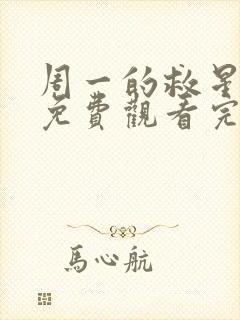 周一的救星
免費觀看完
馬心航